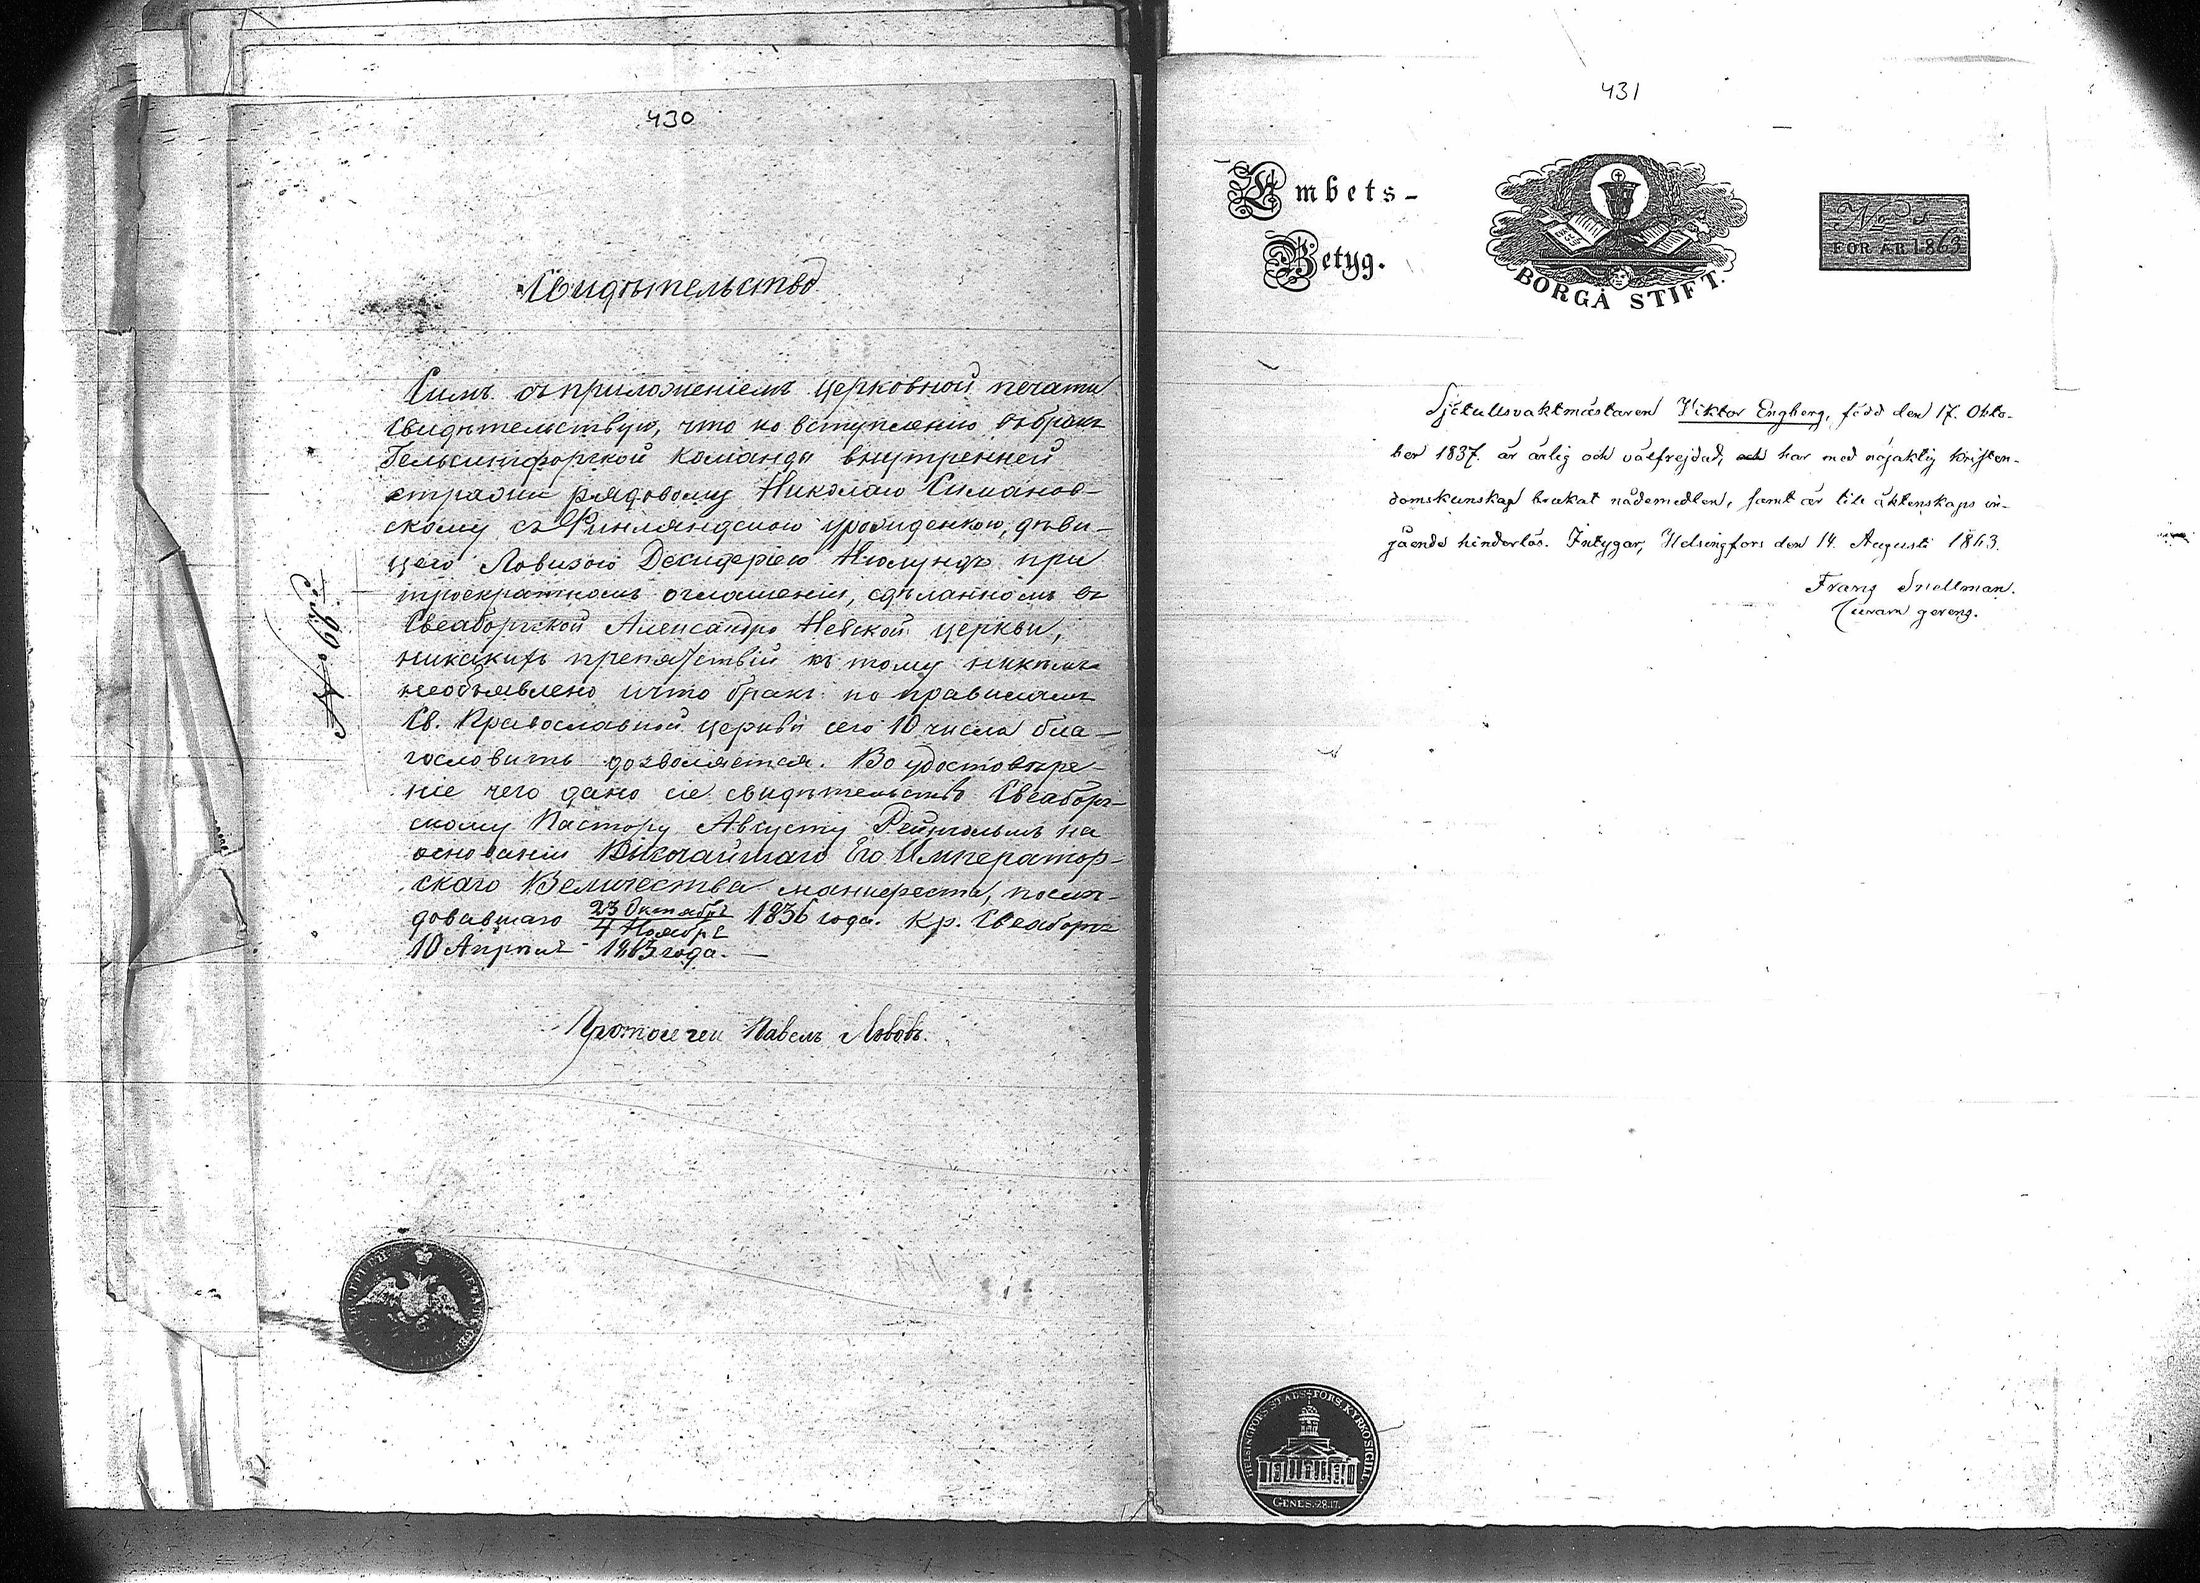 430
Свидѣтельство
Симъ съ приложеніемъ церковной печати
свидѣтельствую, что ко вступленію въ бракъ
Гельсингфорской команды внутренней
стражи рядовому Николаю Симанов-
скому съ Финляндскою уроженкою, дѣви-
цею Ловизою Дезидеріею Нюлундъ при
троекратномъ оглашеніи, сдѣланномъ въ
Свеаборгской Александро Невской церкви,
никакихъ препятствій къ тому никѣмъ
необъявлено и что бракъ по правиламъ
Св. Православной церкви сего 10 числа бла-
гословить дозволяется. Во удостовѣре-
ніе чего дано сіе свидѣтельство Свеаборг-
скому Пастору Августу на
основаніи Высочайшаго Его Император-
скаго Величества манифеста, послѣ-
довавшаго 23 Октября / 4 Ноября 1836 года. Кр. Свеаборгъ
10 Апрѣля 1863 года.
Протоіерей Павелъ Львовъ.
№ 66
431
Embets-
Betyg.
BORGÅ STIFT.
FÖR ÅR 1863
Sjötullsvaktmästaren Viktor Engberg, född den 17. Okto-
ber 1837. är ärlig och välfrejdad, och har med nöjaktig kristen-
domskunskap brukat nådemedlen, samt är till äktenskaps in-
gående hinderlös. Intygar, Helsingfors den 14. Augusti 1863.
Frans Snellman.
Curam gerens.
HELSINGFORS STADS FÖRS. KYRKO SIGILL.
GENES. 28.17.